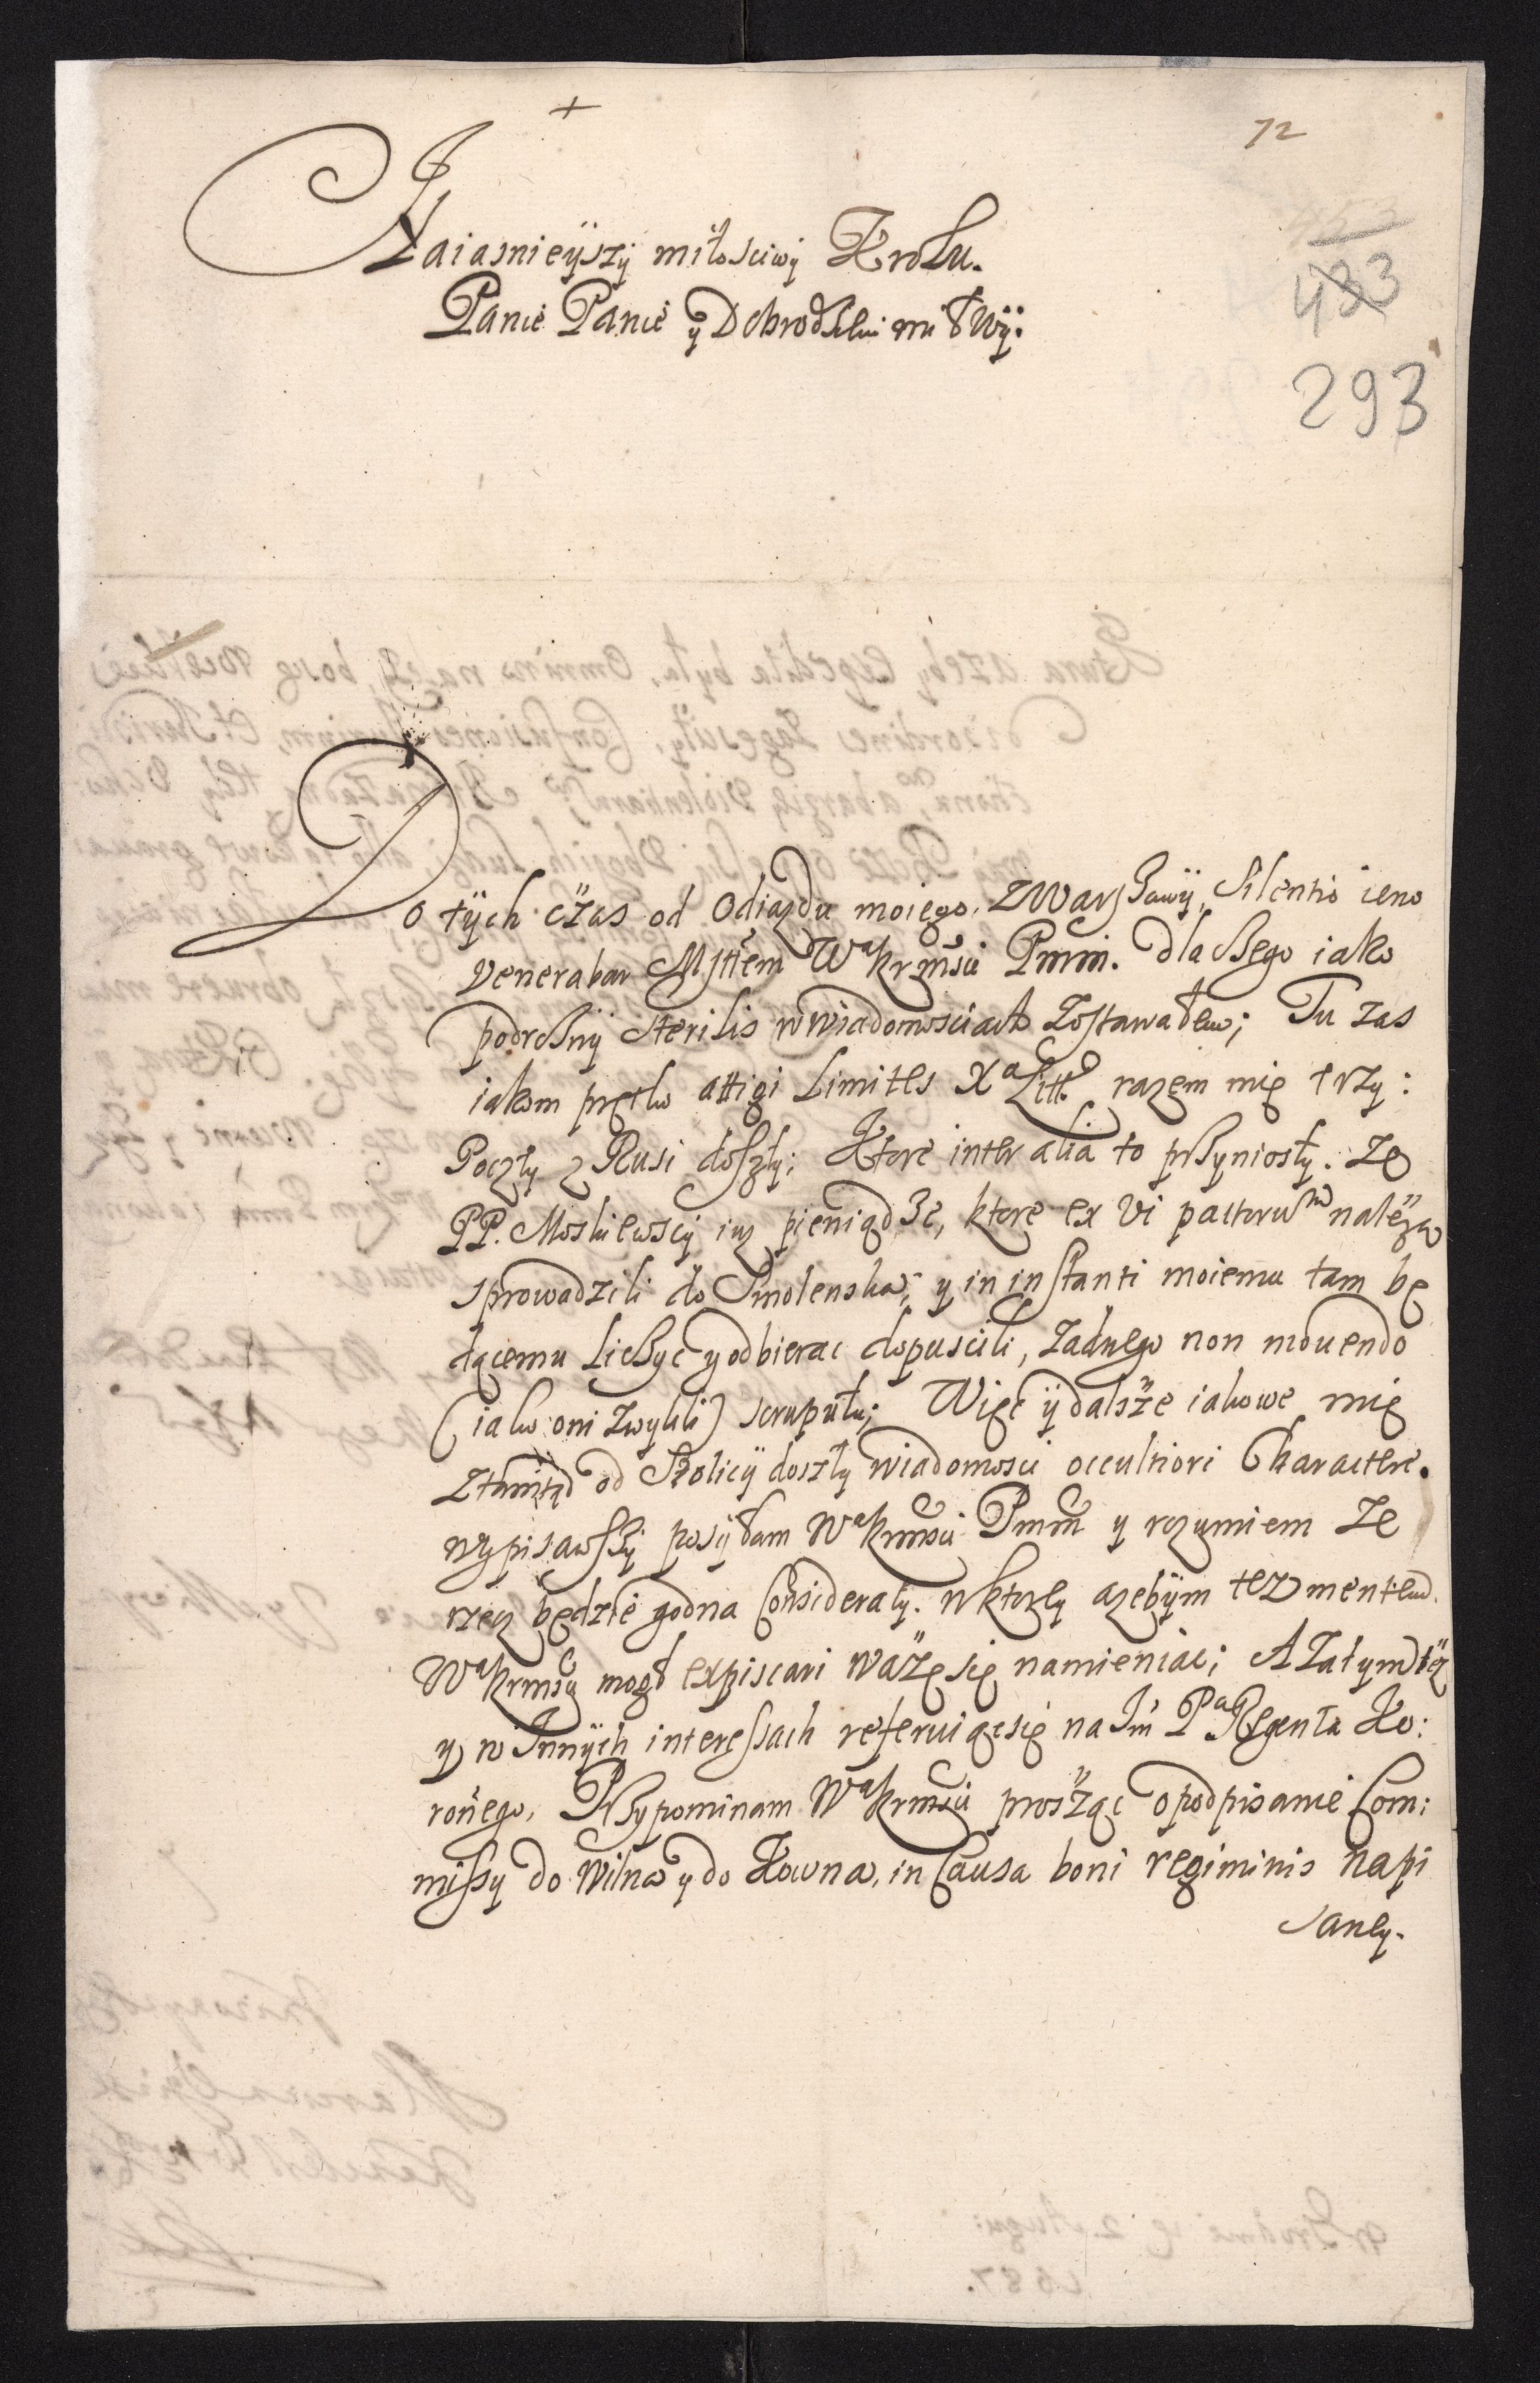 +
72
453
433
293
Naiasnieÿszÿ miłosciwÿ Krolu.
Panie Panie y Dobrodzieiu miłWÿ:
Do tÿch czas od Odiazdu moiego, z Warszawÿ, Silentio ieno
venerabar Msttem WaKrmsci Pmm. dla czego iako
podrożnÿ sterilis w wiadomosciach zostawałem; Tu zas
iakom prętko attigi Limites Xa Litto razem mię trzy:
Poczty z Rusi doszły; Ktore inter alia to przyniosły. że
PP. Moskiewscy iuz pieniądze, ktore ex vi pactorum należą
sprowadzili do Smolenska; y in instanti moiemu tam bę
dącemu Liczyc y odbierac dopuscili, żadnego non mouendo
(iako oni zwykli) scrupułu; Więc ÿ dalsze iakowe mię
ztamtąd od Stolicÿ doszły wiadomosci occultiori Charactere.
wypisawszy posÿłam WaKrmsci Pmm y rozumiem że
rzecz będzie godna Consideraty. w ktorey azebÿm też mentem
WaKrmsci mogł expiscari ważę się namieniac; A zatym też
y w Innÿch interessach referuiąc się na Jm Pa Regenta Ko:
ronego, Przypominam WaKrmsci prosząc o podpisanie Com:
missy do Wilna y do Kowna, in Causa boni regiminis napi
saney.